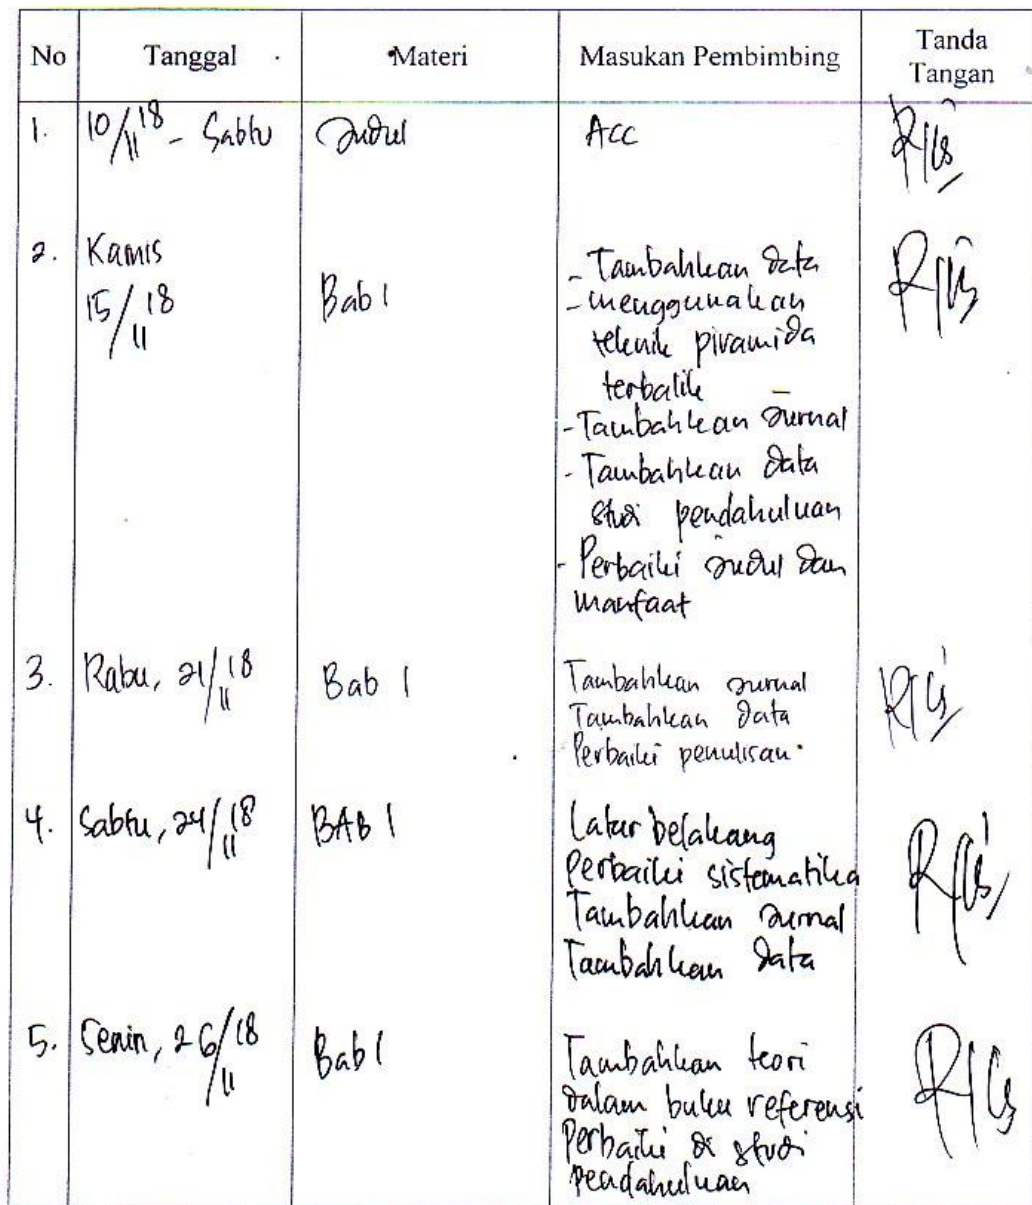 No Tanggal Materi Masukan Pembimbing Tanda Tangan
1. 10/11 18 - Sabtu Judul Acc
2. Kamis
15/11 18 Bab 1
- Tambahkan data
- menggunakan
teknik piramida
terbalik
- Tambahkan Jurnal
- Tambahkan data
studi pendahuluan
- Perbaiki Judul dan
manfaat
3. Rabu, 21/11 18 Bab 1
Tambahkan Jurnal
Tambahkan data
Perbaiki penulisan.
4. Sabtu, 24/11 18 BAB 1
Latar belakang
Perbaiki sistematika
Tambahkan Jurnal
Tambahkan data
5. Senin, 26/11 18 Bab 1
Tambahkan teori
dalam buku referensi
Perbaiki di studi
pendahuluan